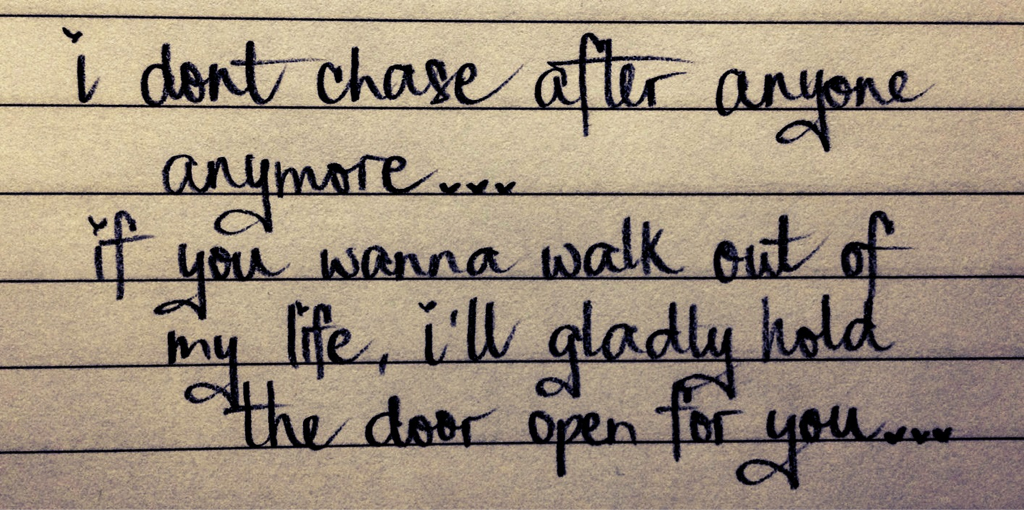 i dont chase after anyone
anymore...
if you wanna walk out of
my life, i'll gladly hold
the door open for you...